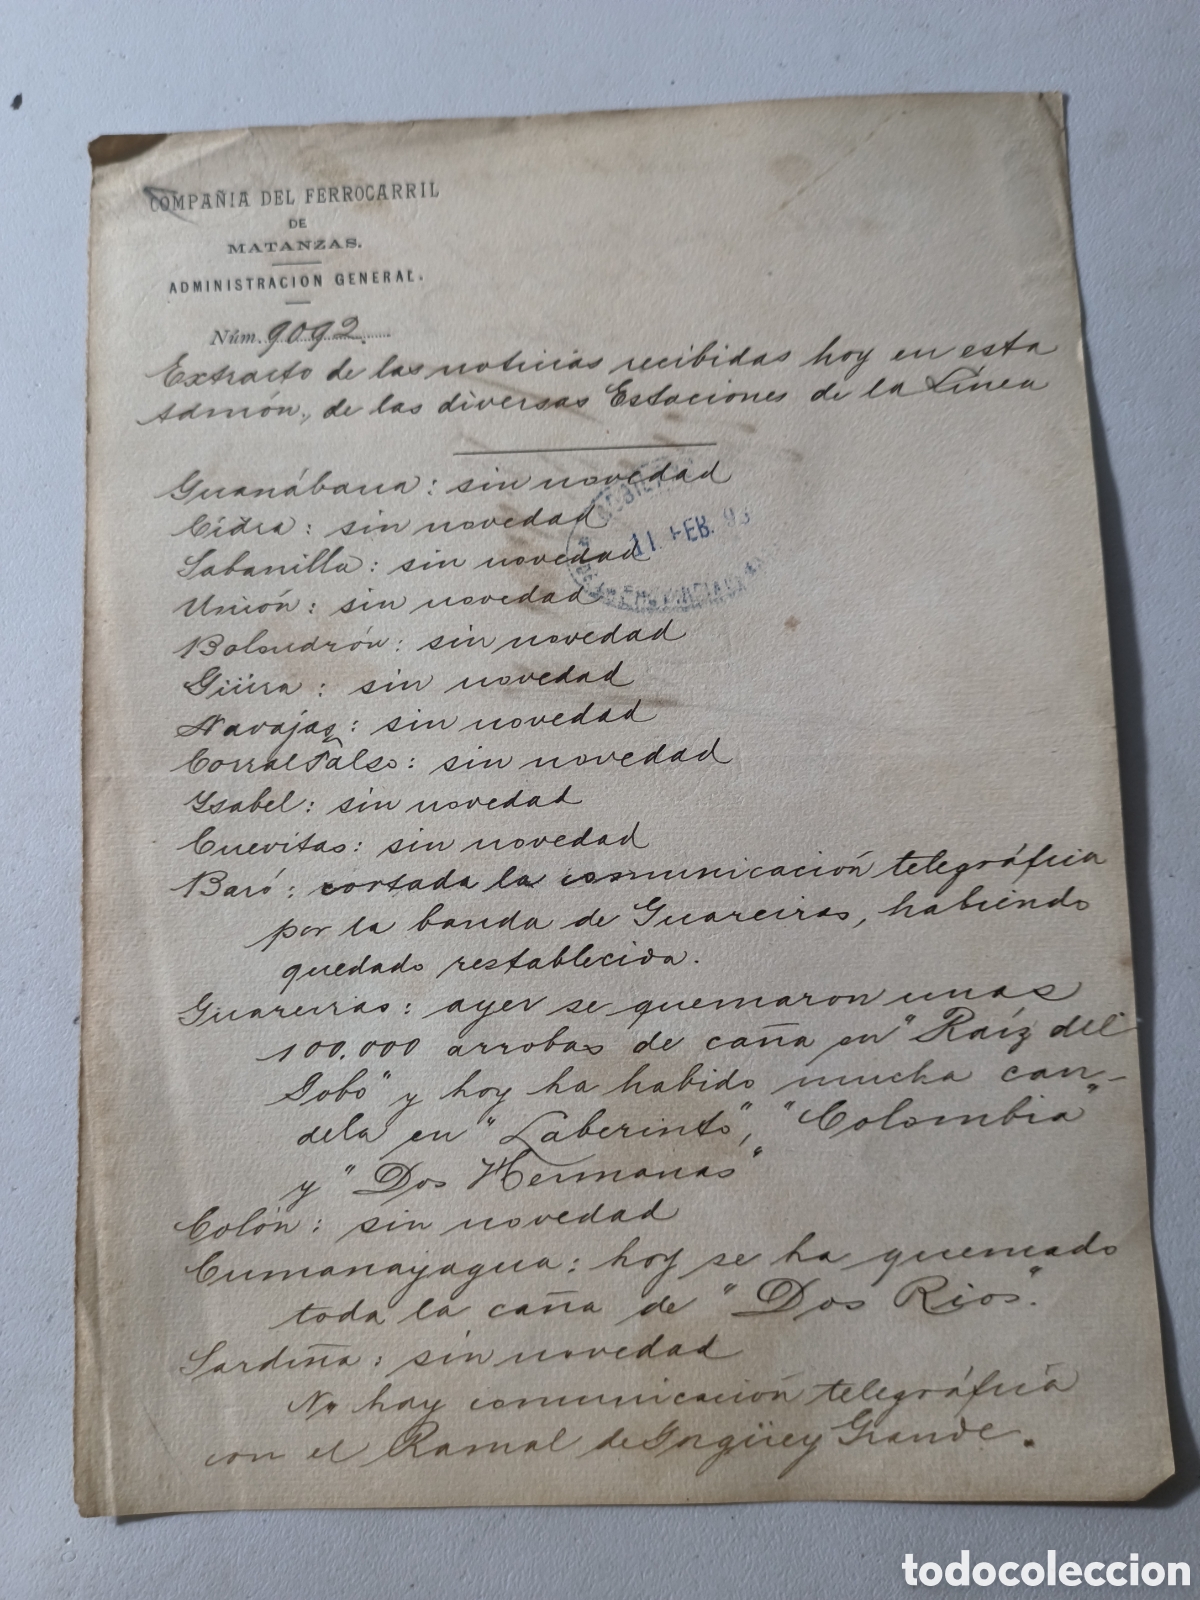 COMPAÑIA DEL FERROCARRIL
DE
MATANZAS.
ADMINISTRACION GENERAL.
Núm. 9092.
Extracto de las noticias recibidas hoy en esta
Admón., de las diversas Estaciones de la Línea
Guanábana: sin novedad
Cidra: sin novedad
11 FEB. 9
Sabanilla: sin novedad
Unión: sin novedad
Bolondrón: sin novedad
Güira: sin novedad
Navajas: sin novedad
Corral Falso: sin novedad
Ysabel: sin novedad
Cuevitas: sin novedad
Baró: cortada la comunicación telegráfica
por la banda de Guareiras, habiendo
quedado restablecida.
Guareiras: ayer se quemaron unas
100.000 arrobas de caña en "Raíz del
Jobo" y hoy ha habido mucha can-
dela en "Laberinto", "Colombia"
y "Dos Hermanas"
Colón: sin novedad
Cumanayagua: hoy se ha quemado
toda la caña de "Dos Rios".
Sardiña: sin novedad
No hay comunicación telegráfica
con el Ramal de Jagüey Grande.
todocoleccion